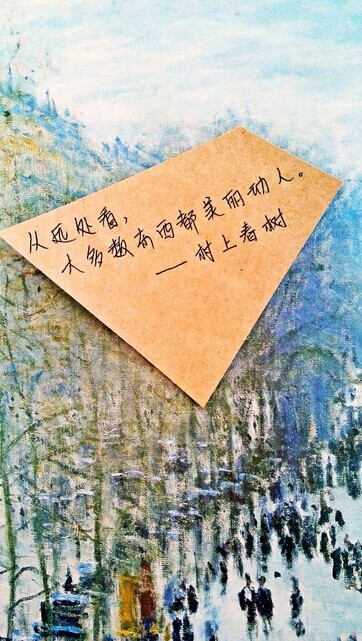 从远处看，
大多数东西都美丽动人。
— 村上春树